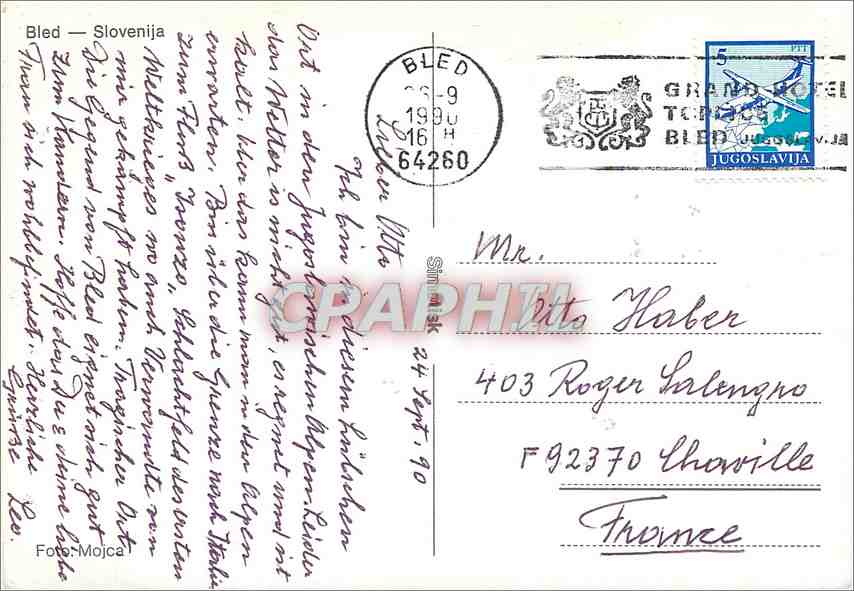 Bled — Slovenija
BLED
26-9
1990
16 H
64260
5
PTT
JUGOSLAVIJA
GRAND HOTEL
TOPLICE
BLED JUGOSLAVIJA
24 Sept. 90
Lieber Otto
Ich bin in diesem hübschen
Ort in den Jugoslawischen Alpen. Leider
das Wetter ist nicht gut, es regnet und ist
kalt. Aber das kann man in den Alpen
erwarten. Bin über die Grenze nach Italien
zum Fluß "Isonzo" Schlachtfeld des ersten
Weltkrieges wo auch Verwandte von
mir gekämpft haben. Tragischer Ort
Die Gegend von Bled eignet sich gut
zum Wandern. Hoffe das Du & deine liebe
Frau sich wohlbefindet. Herzliche
Grüße Leo.
Mr.
Otto Haber
403 Roger Salengro
F 92370 Chaville
France
Foto: Mojca
Sindisk
CPAPHIL